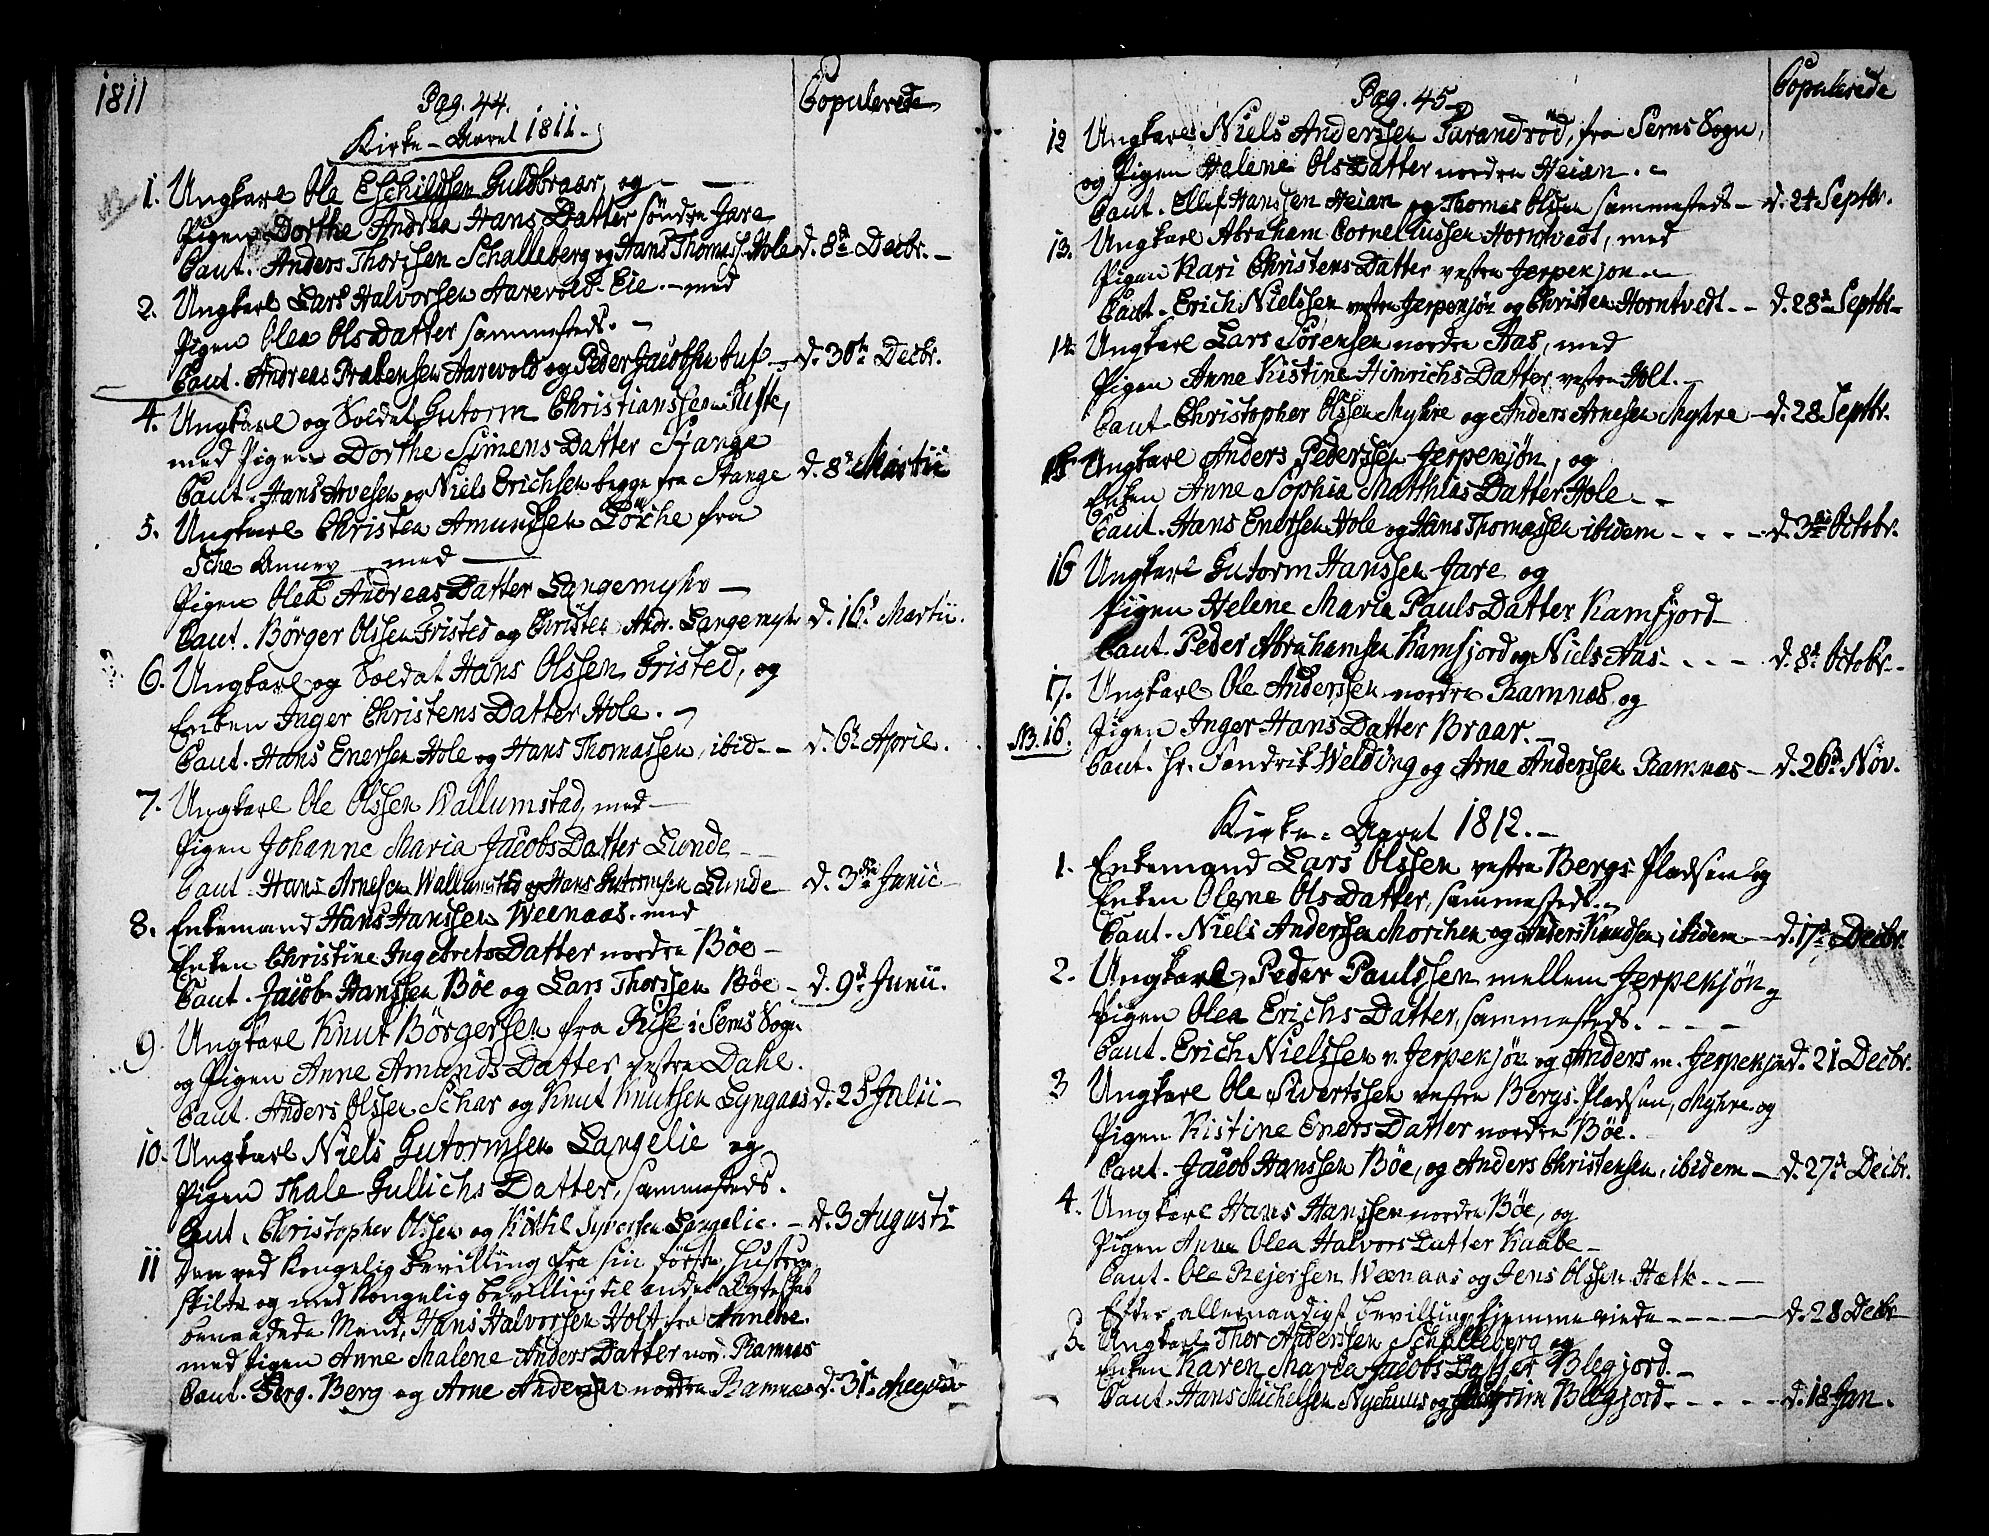 1811
Pag. 44.
Copulerede
Kirke-Aaret 1811.
1. Ungkarl Ole Eschildsen Guldbraar, og
Pigen Dorthe Andrea Hans Datter söndre Jare
Caut. Anders Thorssen Schalleberg og Hans Thomass. Hole d. 8de Decbr.
2. Ungkarl Lars Halvorsen Aarevold-Eie. med
Pigen Olea Ols Datter sammesteds.
Caut. Andreas Prebensen Aarevold og Peder Jacobsen d. 30te Decbr.
4. Ungkarl og Soldat Gutorm Christianssen Tufte,
med Pigen Dorthe Simens Datter Stange
Caut. Hans Arvesen og Niels Erichsen begge fra Stange d. 8de Martii
5. Ungkarl Christen Amundsen Löche fra
med
Pigen Olea Andreas Datter Langemyhr
Caut. Börger Olssen Fristed og Christen Andr. Langemyhr d. 16de Martii.
6. Ungkarl og Soldat Hans Olssen Fristed, og
Enken Inger Christens Datter Hole.
Caut. Hans Enersen Hole og Hans Thomassen, ibid. d. 6te April.
7. Ungkarl Ole Olssen Wallumstad, med
Pigen Johanne Maria Jacobs Datter Lunde
Caut. Hans Arnesen Wallumstad og Hans Gutormsen Lunde d. 3die Junii
8. Enkemand Hans Hanssen Weenaas. med
Enken Christine Ingebrets Datter nordre Böe
Caut. Jacob Hanssen Böe og Lars Thorssen Böe d. 9de Junii.
9. Ungkarl Knut Börgersen fra Rise i Sems Sogn
og Pigen Anne Amunds Datter vestre Dahl.
Caut. Anders Olssen Schar og Knut Knutsen Lyngaas d. 25 Julii
10. Ungkarl Niels Gutormsen Langelie og
Pigen Thale Gullichs Datter, sammesteds.
Caut. Christopher Olssen og Kittil Syversen Langelie. d. 3 Augusti
11 Den ved Kongelig Bevilling fra sin förste Hustrue
skilte og med Kongelig bevilling til andet Ægteskab
benaadede Mand, Hans Halvorsen Holt fra
med Pigen Anne Malene Anders Datter nor. Ramnas
Caut. Berg og Arne Andersen nordre Ramnas d. 31te Augusti
Pag. 45
Copulerede
12 Ungkarl Niels Anderssen Purandröd, fra Sems Sogn,
og Pigen Helene Ols Datter nordre Heian.
Caut. Ellef Hanssen Heian og Thomas Olssen sammesteds d. 24 Septbr.
13. Ungkarl Abraham Corneliussen Horntvedt, med
Pigen Kari Christens Datter vestre Jerpekjön
Caut. Erich Nielssen vestre Jerpekjön og Christen Horntvedt d. 28de Septbr.
14. Ungkarl Lars Sörensen nordre Aas, med
Pigen Anne Kistine Hinrichs Datter vestre Holt.
Caut. Christopher Olssen Myhre og Anders Arnesen Myhre d. 28 Septbr.
15 Ungkarl Anders Pederssen Jerpekjön, og
Enken Anne Sophia Matthias Datter Hole
Caut. Hans Enersen Hole og Hans Thomassen ibidem d. 3die Octobr.
16 Ungkarl Gutorm Hanssen Jare og
Pigen Helene Maria Pauls Datter Kamfjord
Caut. Peder Abrahamsen Kamfjord og Niels Aas d. 8de Octobr.
17. Ungkarl Ole Anderssen nordre Ramnas, og
NB. 16. Pigen Inger Hans Datter Braar.
Caut. Hr. Welding og Arne Anderssen Ramnas d. 26de Nov.
Kirke-Aaret 1812.
1. Enkemand Lars Olssen vestre Bergs Pladsen og
Enken Olene Ols Datter, sammesteds.
Caut. Niels Anderssen Morchen og Anders Knudsen, ibidem d. 17de Decbr.
2. Ungkarl, Peder Paulssen mellem Jerpekjön og
Pigen Olea Erichs Datter, sammesteds.
Caut. Erich Nielssen v. Jerpekjön og Anders m. Jerpekjön d. 21 Decbr.
3 Ungkarl Ole Sivertssen vestre Bergs-Pladsen, Myhre og
Pigen Kistine Eners Datter nordre Böe.
Caut. Jacob Hanssen Böe, og Anders Christensen, ibidem d. 27de Decbr.
4. Ungkarl Hans Hanssen nordre Böe, og
Pigen Anne Olea Halvors Datter Kaabe
Caut. Ole Rejersen Weenaas og Jens Olssen Hætk
Efter allernaadigst bevilling hjemmeviede d. 28 Decbr
5. Ungkarl Thor Anderssen Schalleberg og
Enken Karen Maria Jacobs Datter Blegjord.
Caut. Hans Michelsen Nyehuus og Blegjord d. 18 Jan.